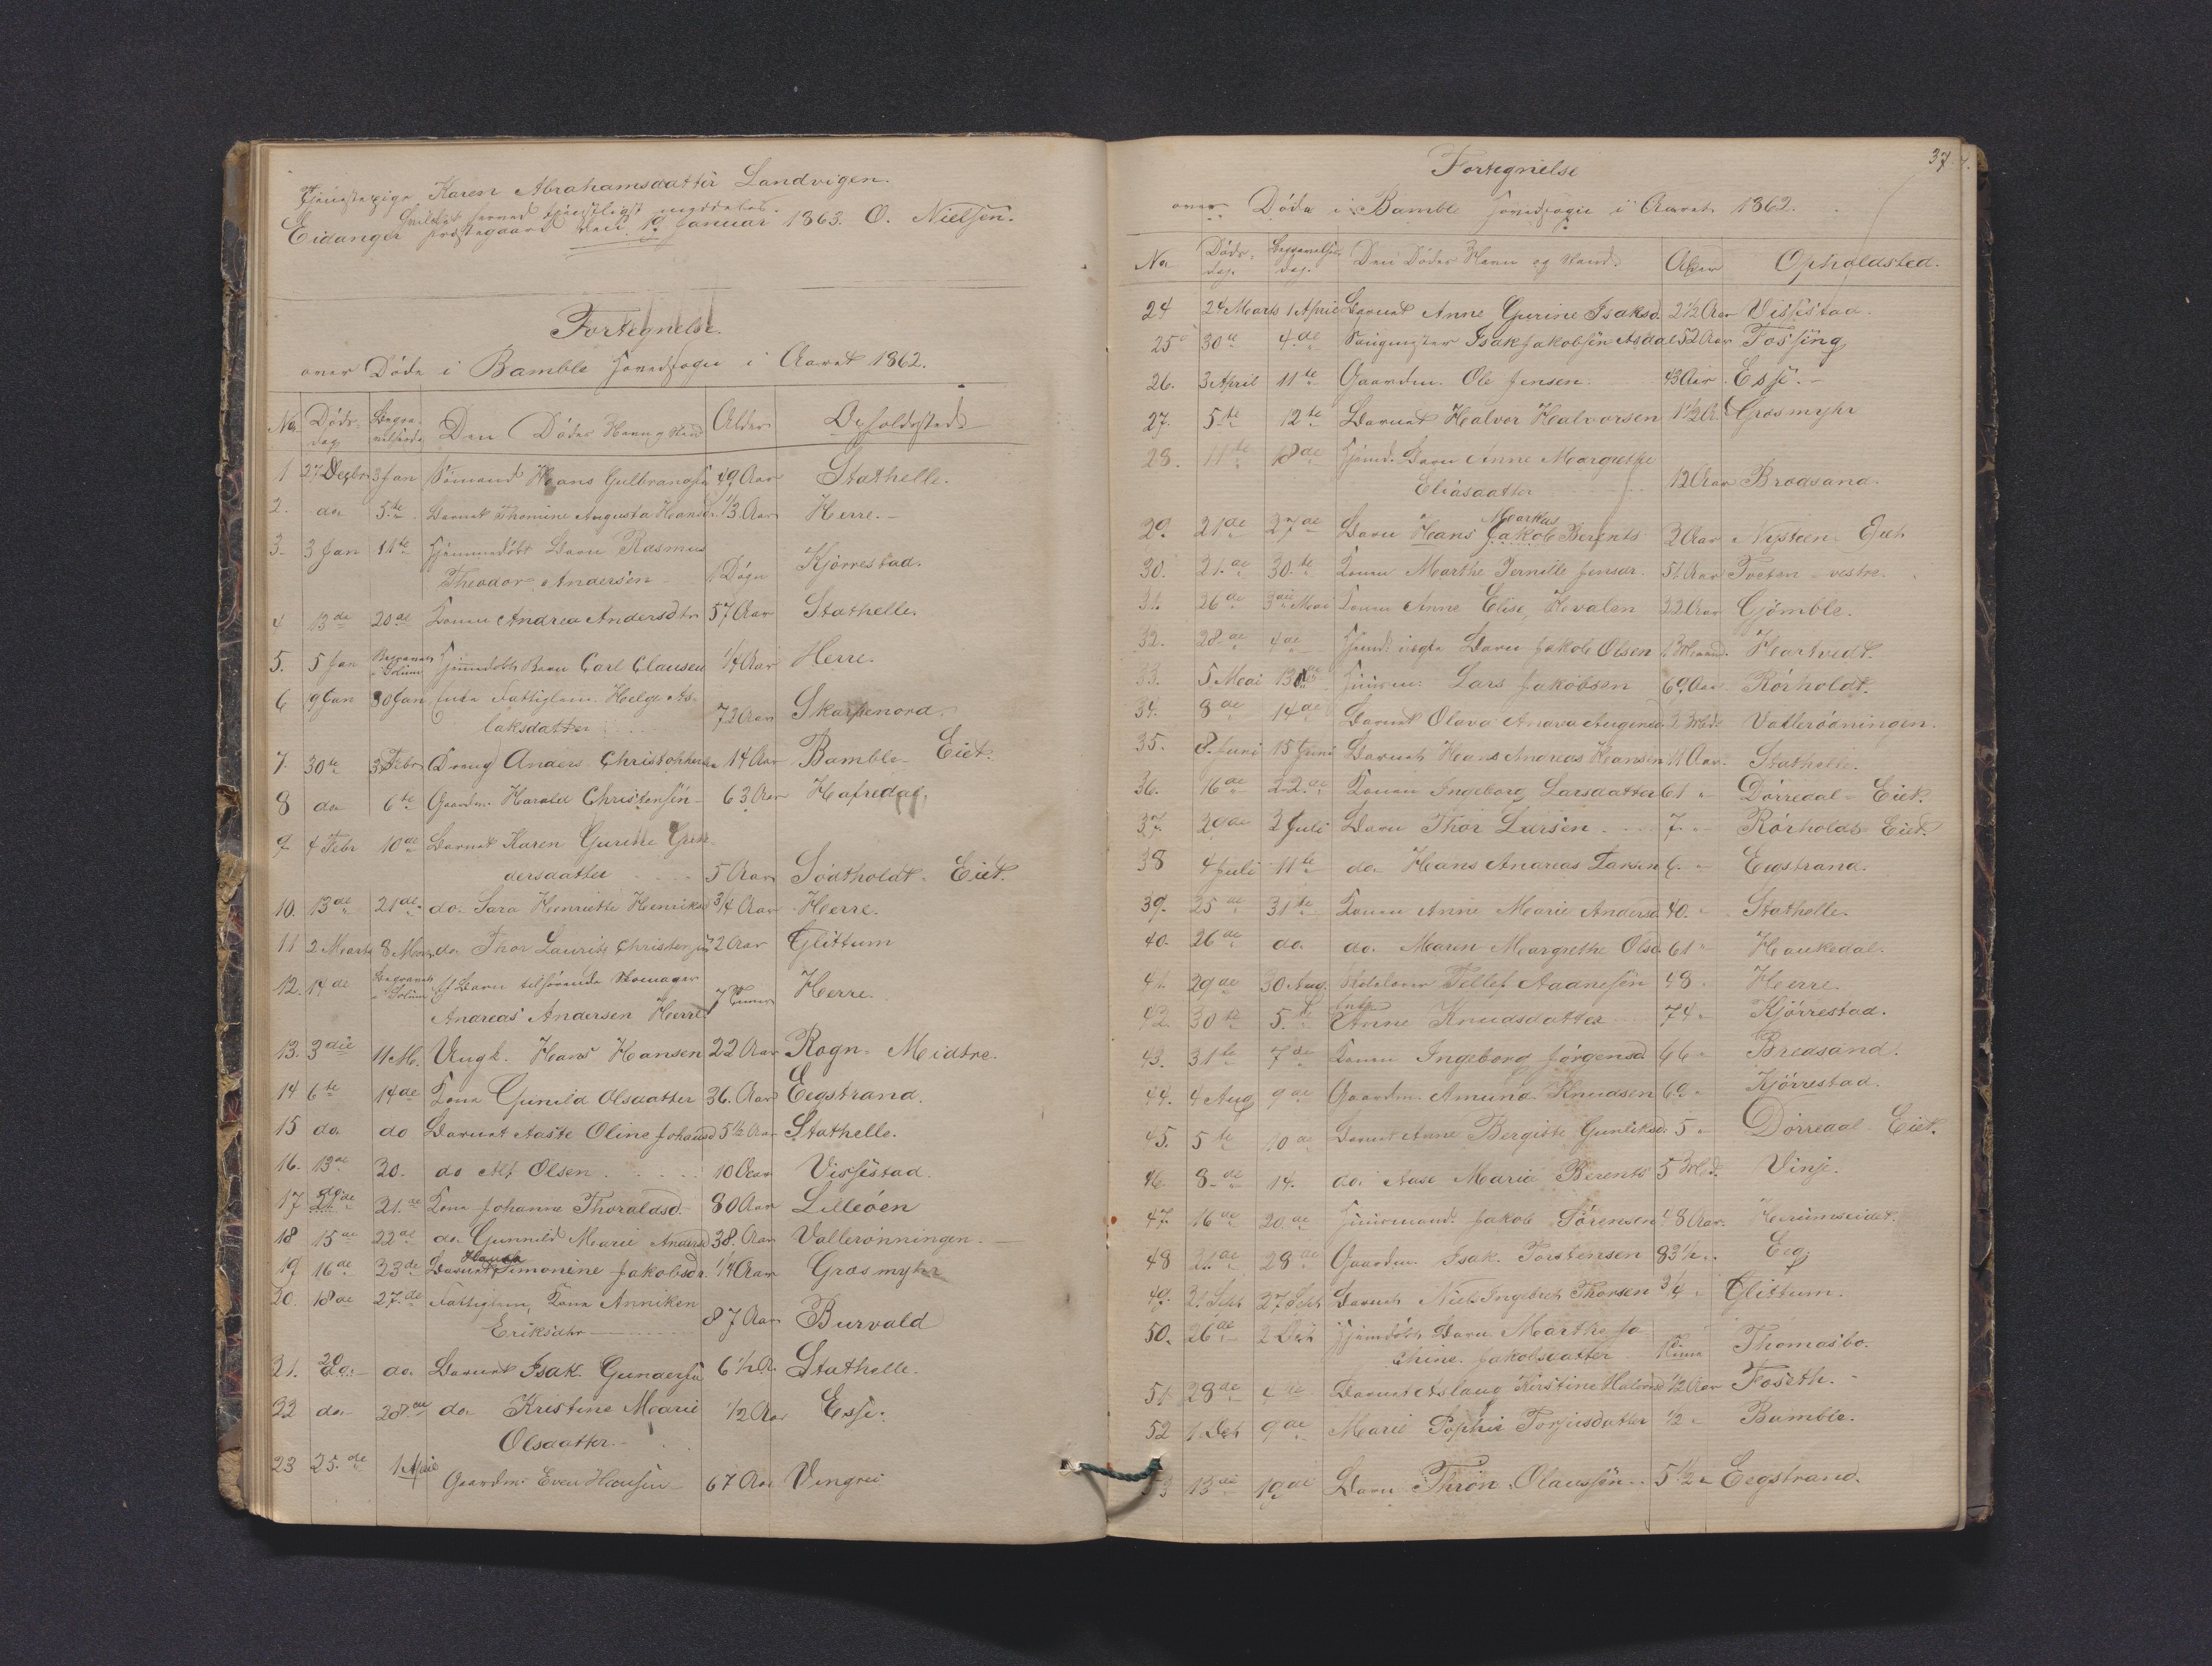 Tjenestepige Karen Abrahamsdatter Landvigen.
herved tjenstligst meddeles.
Eidanger Præstegaard den 19 Januar 1863. O. Nielsen.
Fortegnelse.
over Døde i Bamble Hovedsogn i Aaret 1862.
No. Døds-dag Begravelsesdag Den Dødes Navn og Stand Alder Opholdssted
1 27 Decbr 3 Jan Sømand Hans Gulbrandsen 49 Aar Stathelle.
2. do 5te Barnet Thomine Augusta Hansdr. 1/3 Aar Herre.
3. 3 Jan 11te Hjemmedøbt Barn Rasmus
Theodor Andersen 1 Døgn Kjørrestad.
4 13de 20de Konen Andrea Andersdtr 57 Aar Stathelle.
5. 5 Jan Begravet i Solum Hjemmedøbt Barn Carl Clausen 1/4 Aar Herre.
6 9 Jan 30 Jan Enke Fattiglem Helge As-
laksdatter 72 Aar Skarpenord.
7. 30te 3 Febr Dreng Anders Christophersen 14 Aar Bamble- Eiet.
8 do 6te Gaardm. Harald Christensen 63 Aar Hafredal.
9 4 Febr 10de Barnet Karen Gurethe
dersdatter 5 Aar Eiet.
10. 13de 21de do. Sara Henriette Henriksd 3/4 Aar Herre.
11 2 Marts 8 Marts do Thor Laurits Christensen 2 Aar Glittum
12. 14de Begravet i Solum Et Barn tilhørende Skomager
Andreas Andersen Herre 7 Timer Herre.
13. 3die 11 M. Ungk. Hans Hansen 22 Aar Rogn- Midtre.
14 6te 14de Kone Gunild Olsdatter 36. Aar Eegstrand.
15 do. do Barnet Aaste Oline Johansd 5 1/2 Aar Stathelle.
16. 13de 20. do Alf Olsen 10 Aar Vissestad.
17 21de 21.de Kone Johanne Thoraldsd. 80 Aar Lilleøen
18 15de 22de do. Gunnild Marie Andersd 38. Aar Vallerønningen.
19 16de 23de Barnet Hanna Simonine Jakobsdr. 1/4 Aar Grasmyhr
20. 18de 27.de Fattiglem, Kone Anniken
Eriksdtr 87 Aar Burvald
21. 20 do. do. Barnet Isak Gundersen 6 1/2 A. Stathelle.
22 do. 28de do Kristine Marie 1/2 Aar Esse.
Olsdatter.
23 25.de 1 April Gaardm. Even Hansen 67 Aar Vingrei
37.
Fortegnelse
over Døde i Bamble Hovedsogn i Aaret 1862.
No Døds-dag. Begravelses dag. Den Dødes Navn og Stand. Alder Opholdsted.
24 24 Marts 1 April Barnet Anne Gurine Isaksd. 2 1/2 Aar Vissestad.
25 30te 4.de Isak Jakobsen Asdal 52 Aar Fossing
26. 3 April 11te Gaardm. Ole Jensen. 43 Aar. Esse.
27. 5te 12te Barnet Halvor Halvorsen 1 1/2 A. Grasmyhr
28. 11te 18de Hjemd. Barn Anne Margrethe
Eliasdatter 12 Aar Bradsand.
29. 21de 27de Barn Hans Markus Jakob Berents 2 Aar Nysteen Eiet
30. 21.de 30.te Konen Marthe Pernille Jensdr. 51 Aar Tveten vestre.
31. 26de 3die Mai Konen Anne Elise, Hvalen 22 Aar Gjømble.
32. 28de 4de Hjemd. uægte Barn Jakob Olsen 1 Maaned. Hartvedt.
33. 5 Mai 13de Huusm. Lars Jakobsen 69 Aar Rørholdt.
34. 8de 14de Barnet Olava Andrea 2 Md. Vallerødningen.
35. 8. Juni 15 Juni Barnet Hans Andreas Hansen 11 Aar. Stathelle.
36. 16de 22.de Konen Ingeborg Larsdatter 61 " Dørredal- Eiet.
37. 29de 3 Juli Barn Thor Larsen 7. " Rørholdt- Eiet.
38 4 Juli 11te do. Hans Andreas Larsen 6. " Eegstrand.
39. 25de 31te Konen Anne Marie Andersd. 40. " Stathelle.
40. 26de do. do. Maren Margrethe Olsd. 61 " Haukedal.
41. 29de 30. Aug. Skolelærer Tellef Aanesen 48. Herre.
42. 30te 5.te Enke Anne Knudsdatter 74 " Kjørrestad.
43. 31te 7de Konen Ingeborg Jørgensd. 66 " Bredsand.
44. 4 Aug 9de Gaardm. Amund Knudsen 69 " Kjørrestad.
45. 5te 10de Barnet Anne Bergiste Gunliksd. 5 " Dørredal- Eiet.
46. 8de 14. do. Aase Maria Berents 5 Md. Vinje.
47. 16de 20de Huusmand. Jakob Sørensen 48 Aar. Herumseidet.
48 21de 28de Gaardm. Isak Torstensen 83 1/2 " Eeg
49. 21 Sept 27 Sept Barnet Niels Ingebret Thorsen 3/4 " Glittum.
50. 26de 2 Oct Hjemdøbt Barn Marthe Jo-
chine Jakobsdatter Timer Thomasbo.
51. 28de Barnet Aslaug Kirstine Halvorsd 1/2 Aar Foseth.
52 1 Oct 9de Marie Sophie Torjusdatter 1/2 " Bamble.
53 13de 19de Barn Thron Olaussen 5 1/2 " Eegstrand.